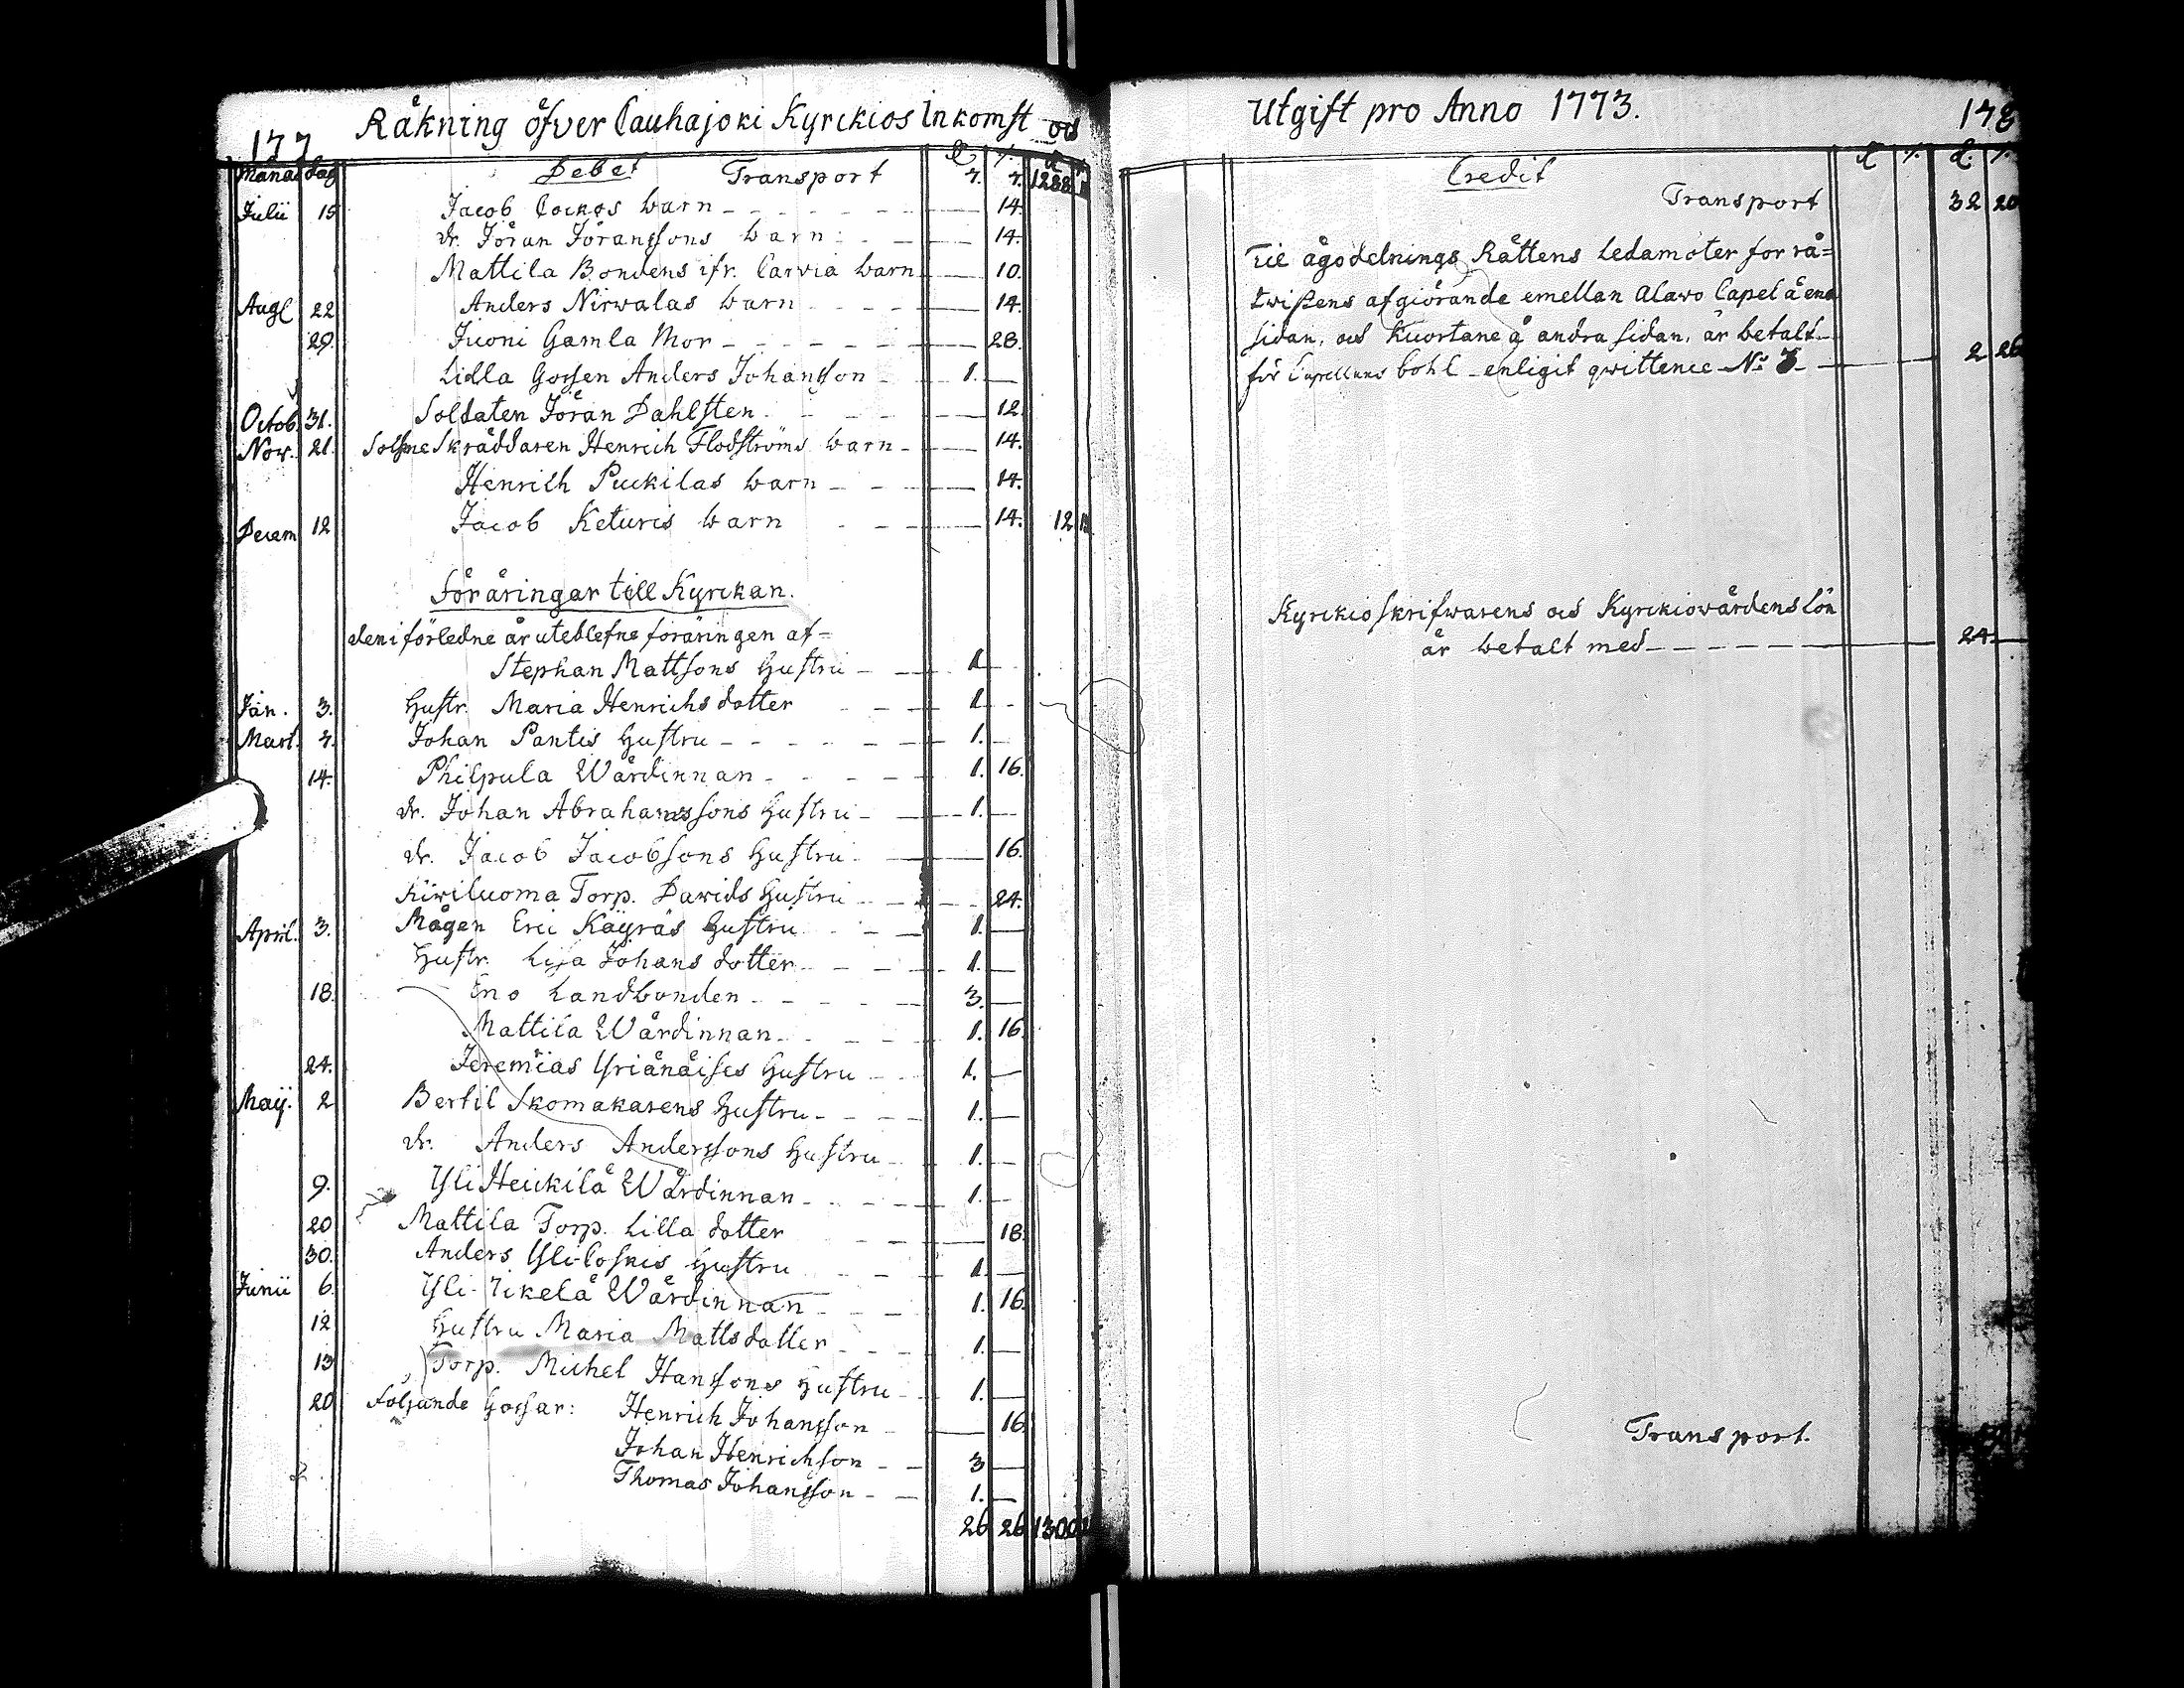 177 Råkning öfver Cauhajoki Kyrckios Inkomst och
Månad Dag Debet Transport 4. 4. 1288
Julii 15 Jacob Cockos barn 14.
dr. Jöran Göranssons barn 14.
Mattila Bondens ifr. Carvia barn 10.
Augl 22 Anders Nirwalas barn 14.
29. Juoni Gamla Mor 28.
Lilla Gossen Anders Johansson 1.
Octob. 31. Soldaten Jöran Dahlsten 12.
Nov. 21. Sokne Skräddaren Henrich Flodströms barn 14.
Henrich Puckilas barn 14.
Decem 12 Jacob Keturis barn 14. 12
Föräringar till Kyrckan.
den i förledne år uteblefne föräringen af
Stephan Mattsons Hustru 1
Jan. 3. Hustr. Maria Henrichsdotter 1
Mart. 4. Johan Pantis Hustru 1.
14. Philpula Wärdinnan 1. 16.
dr. Johan Abrahamssons Hustru 1.
dr. Jacob Jacobsons Hustru 16.
Kiwiluoma Torp. Davids Hustru 24.
April. 3. Mågen Eric Käyräs Hustru 1.
Hustr. Lisa Johans dotter 1.
18. Eno Landbonden 3.
Mattila Wärdinnan 1. 16.
24. Jeremias Yriänäises Hustru 1.
Maÿ. 2 Bertil Skomakarens Hustru 1.
dr. Anders Anderssons Hustru 1.
9. Yli Heickilä Wärdinnan 1.
20 Mattila Torp. Lilla dotter 18.
30. Anders Yli-Coskis Hustru 1.
Junii 6. Yli-Pikelä Wärdinnan 1. 16.
12 Hustru Maria Mattsdotter 1.
13 Torp. Michel Hanssons Hustru 1.
20 Följande Gossar: Henrich Johansson 16
Johan Henrichson 3
Thomas Johansson 1.
26 26 1300
Utgift pro Anno 1773. 178
Credit
Transport 32 20
Til ägodelnings Rättens Ledamöter för rå=
twistens afgiörande emellan Alawo Capel å ena
sidan, och Kuortane å andra sidan, är betalt
för Capellans bohl enligit qwittence No 3 2 26
Kyrckioskrifwarens och Kyrckiowärdens lön
är betalt med 24
Transport.